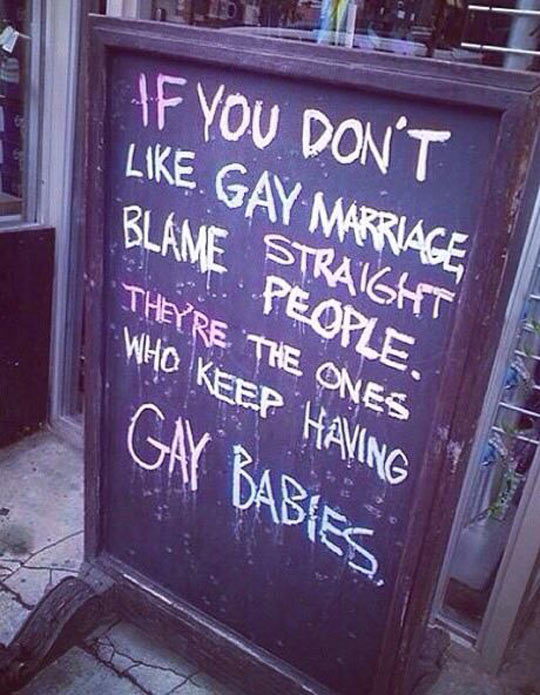 IF YOU DON'T
LIKE GAY MARRIAGE,
BLAME STRAIGHT
PEOPLE.
THEY'RE THE ONES
WHO KEEP HAVING
GAY BABIES.